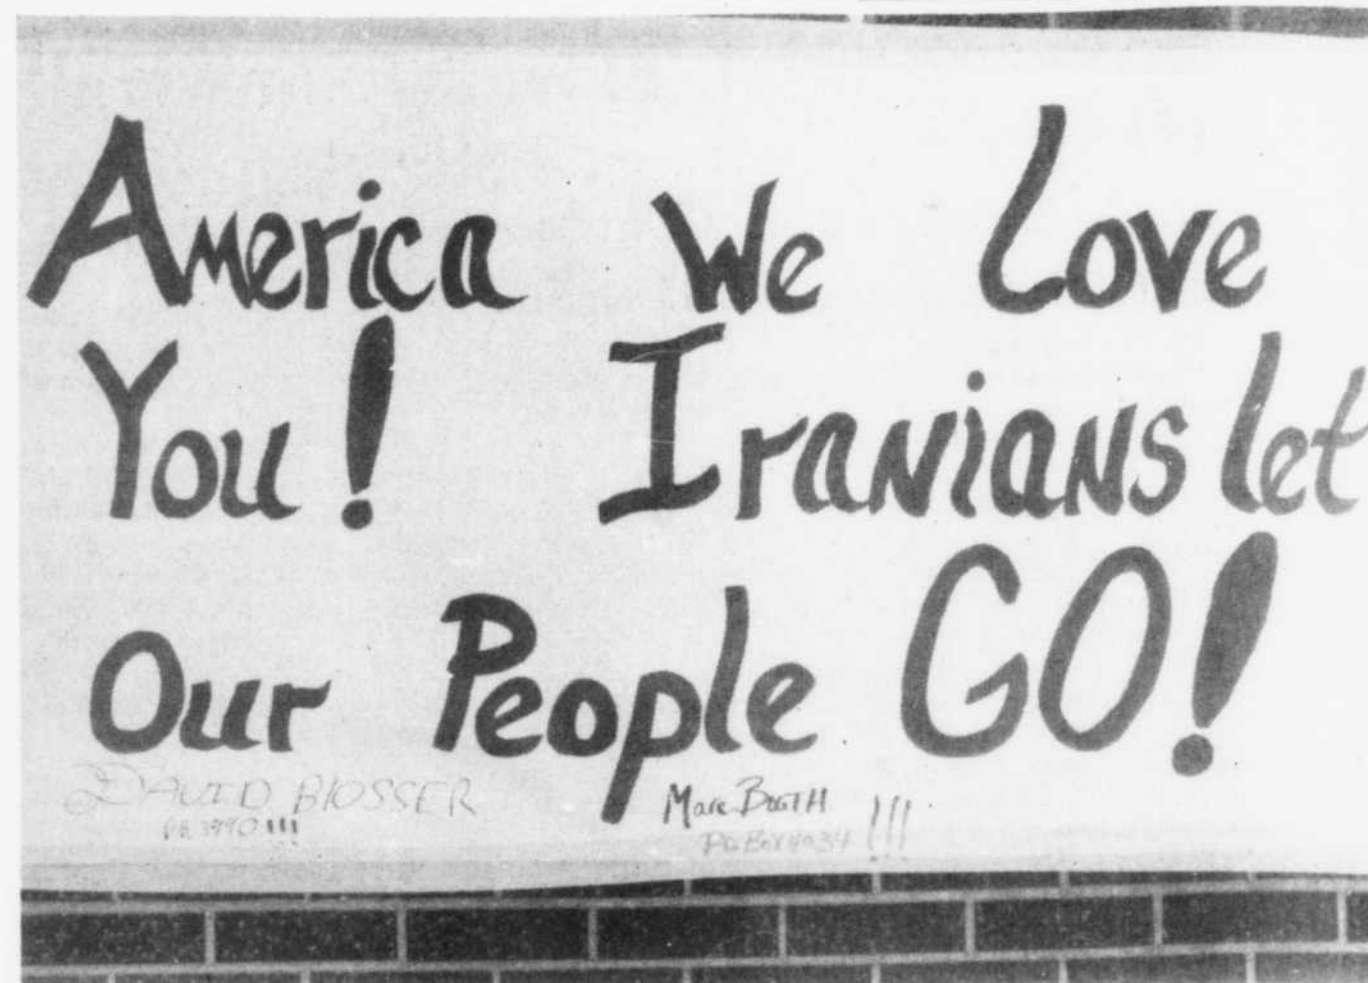 America We Love
You! Iranians let
Our People GO!
DAVID BlOSSER Marc BOOTH !!!
!!! PO Box 4034